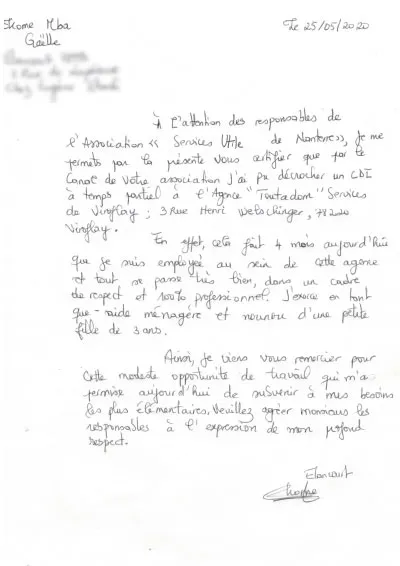 Ikome Mba
Gaëlle
Le 25/05/2020
À l'attention des responsables de
l'Association << Services Utile de Nanterre>>, Je me
permets par la présente vous certifier que par le
Canal de Votre association j'ai pu décrocher un CDI
à temps partiel à l'Agence "Toutadom" Services
de Viroflay ; 3 Rue Henri Welschinger, 78220
Viroflay.
En effet, cela fait 4 mois aujourd'hui
que je suis employée au sein de cette agence
et tout se passe très bien, dans un cadre
de respect et professionnel. J'exerce en tant
que - aide ménagère et nounou d'une petite
fille de 3 ans.
Ainsi, je viens vous remercier pour
Cette modeste opportunité de travail qui m'a
permise aujourd'hui de subvenir à mes besoins
les plus élémentaires, Veuillez agréer monsieurs les
responsables à l'expression de mon profond
respect.
Elancourt